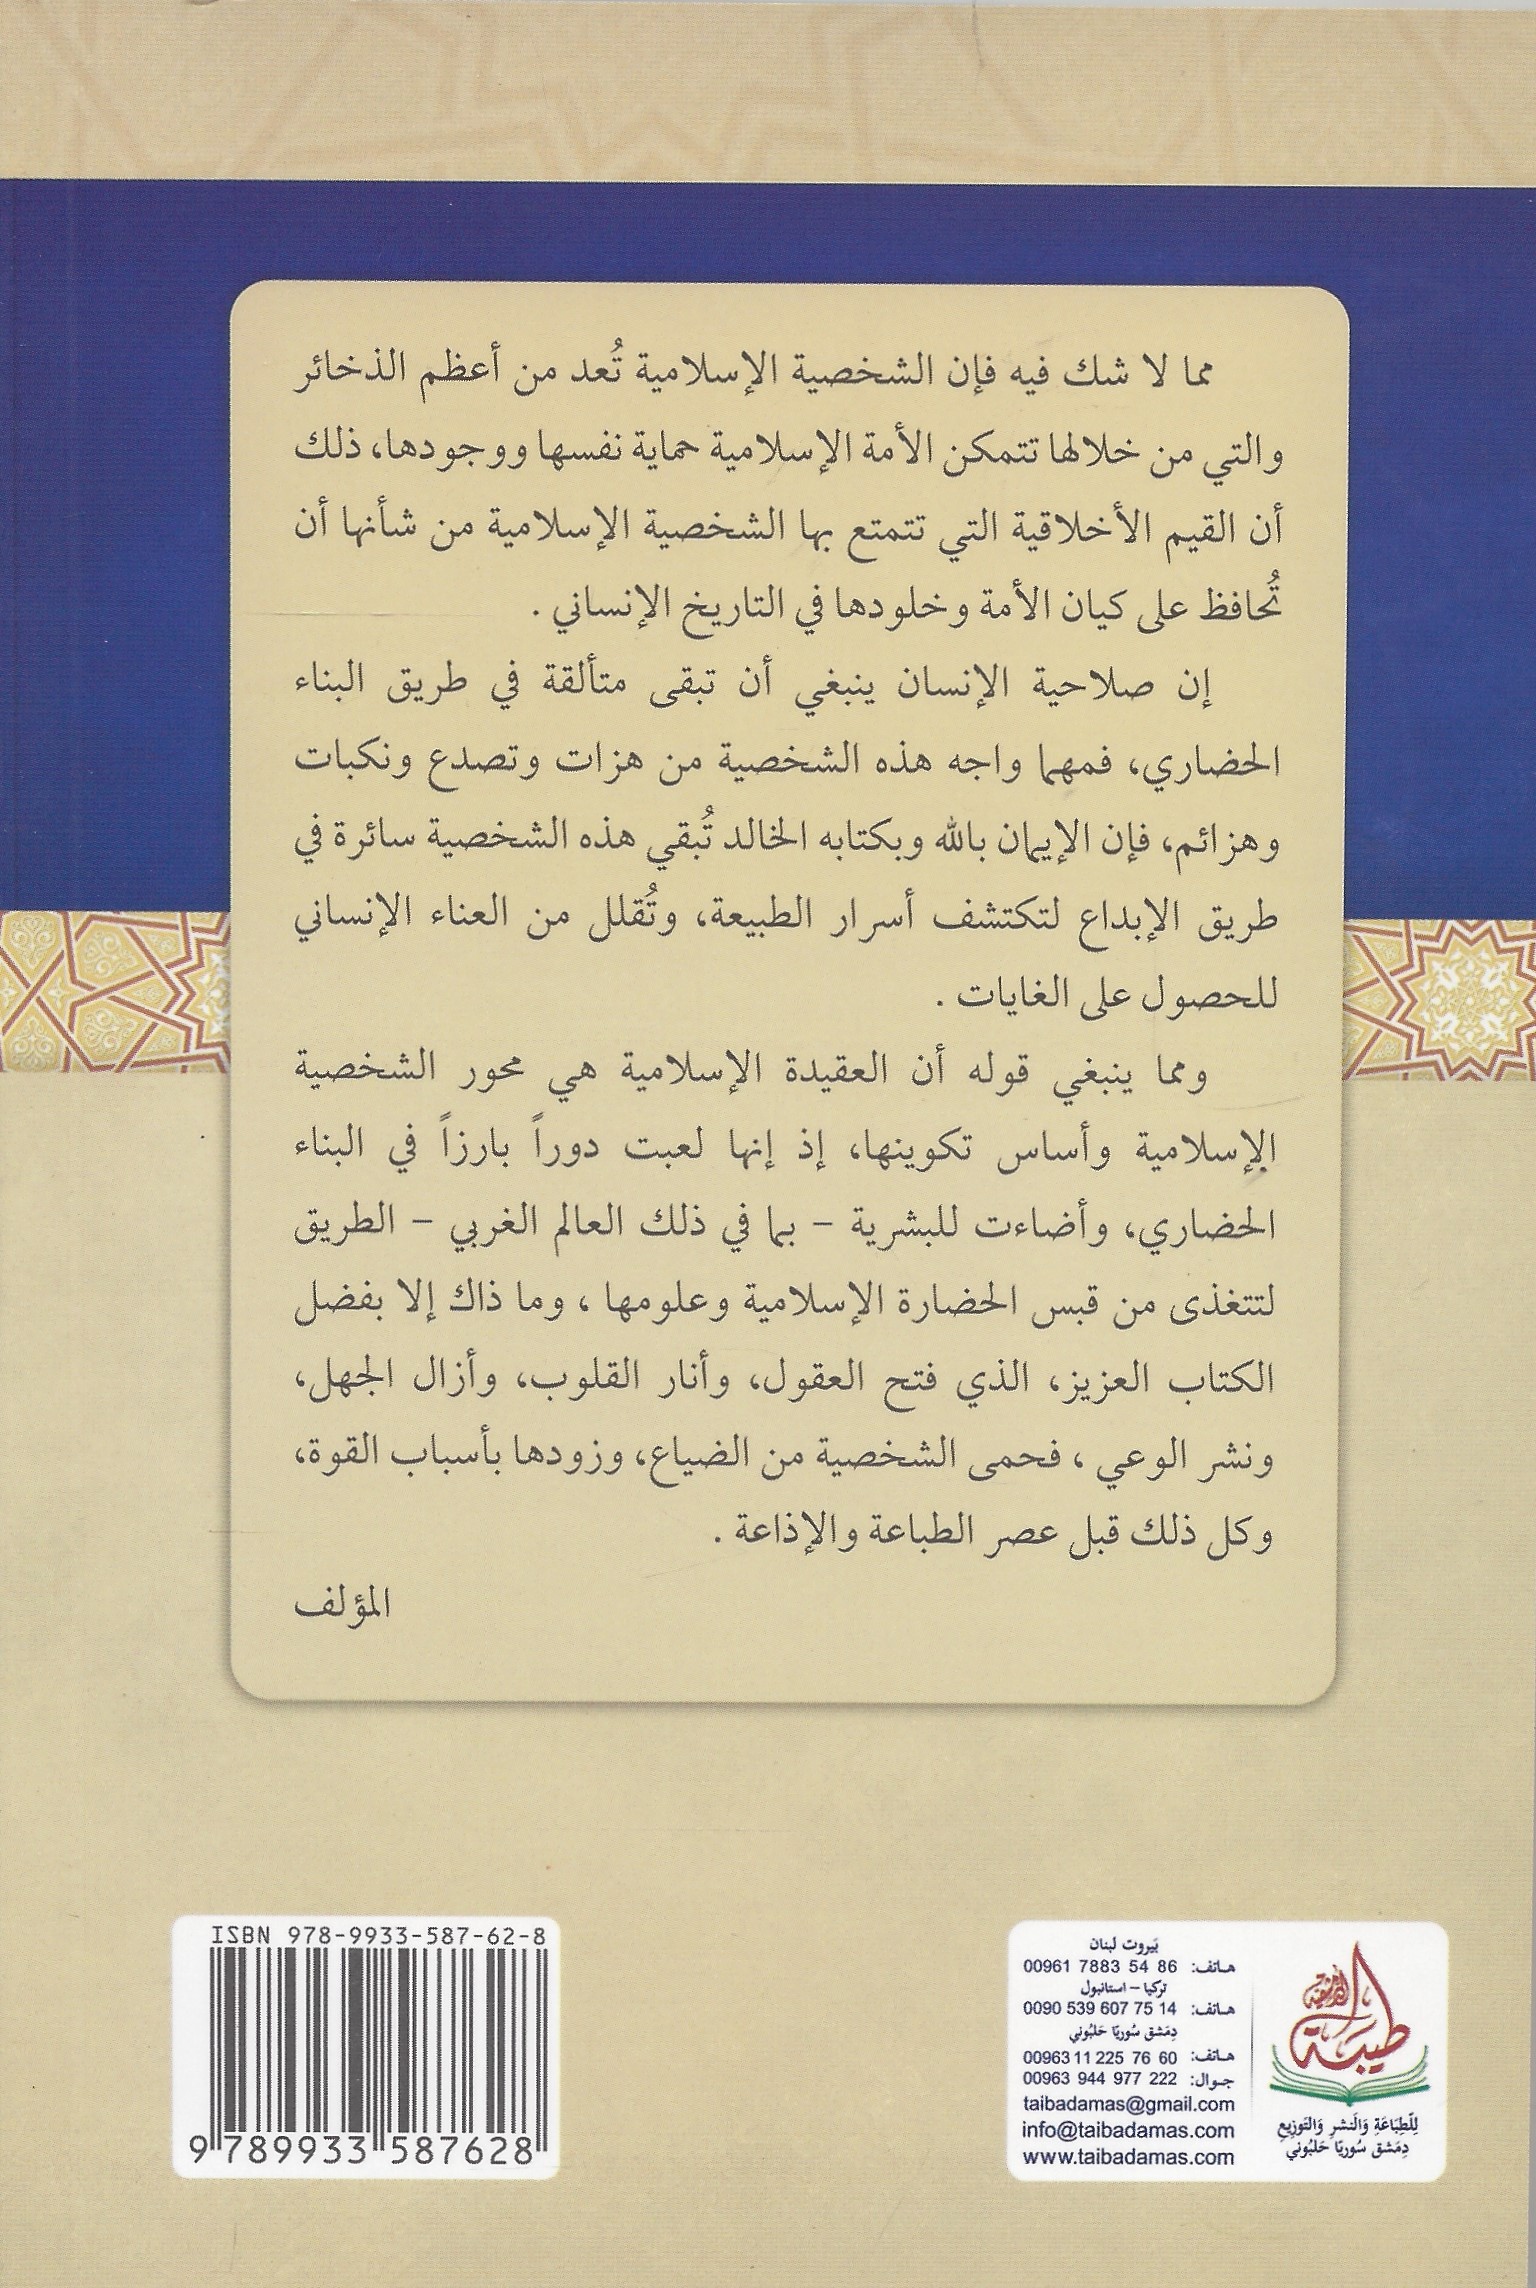 مما لا شك فيه فإن الشخصية الإسلامية تُعد من أعظم الذخائر
والتي من خلالها تتمكن الأمة الإسلامية حماية نفسها ووجودها، ذلك
أن القيم الأخلاقية التي تتمتع بها الشخصية الإسلامية من شأنها أن
تُحافظ على كيان الأمة وخلودها في التاريخ الإنساني .
إن صلاحية الإنسان ينبغي أن تبقى متألقة في طريق البناء
الحضاري، فمهما واجه هذه الشخصية من هزات وتصدع ونكبات
وهزائم، فإن الإيمان بالله وبكتابه الخالد تُبقي هذه الشخصية سائرة في
طريق الإبداع لتكتشف أسرار الطبيعة، وتُقلل من العناء الإنساني
للحصول على الغايات .
ومما ينبغي قوله أن العقيدة الإسلامية هي محور الشخصية
الإسلامية وأساس تكوينها، إذ إنها لعبت دوراً بارزاً في البناء
الحضاري، وأضاءت للبشرية - بما في ذلك العالم الغربي - الطريق
لتتغذى من قبس الحضارة الإسلامية وعلومها ، وما ذاك إلا بفضل
الكتاب العزيز، الذي فتح العقول، وأنار القلوب، وأزال الجهل،
ونشر الوعي ، فحمى الشخصية من الضياع، وزودها بأسباب القوة،
وكل ذلك قبل عصر الطباعة والإذاعة .
المؤلف
طيبة
الدمشقية
للِطِّبَاعَةِ وَالنشرِ وَالتَوزِيعِ
دِمَشق سُوريّا حَلبُوني
بَيروت لبنان
هـاتف: 00961 7883 54 86
تركيا - استانبول
هـاتف: 0090 539 607 75 14
دِمَشق سُوريّا حَلبُوني
هـاتف: 00963 11 225 76 60
جـوال: 00963 944 977 222
taibadamas@gmail.com
info@taibadamas.com
www.taibadamas.com
ISBN 978-9933-587-62-8
9 789933 587628